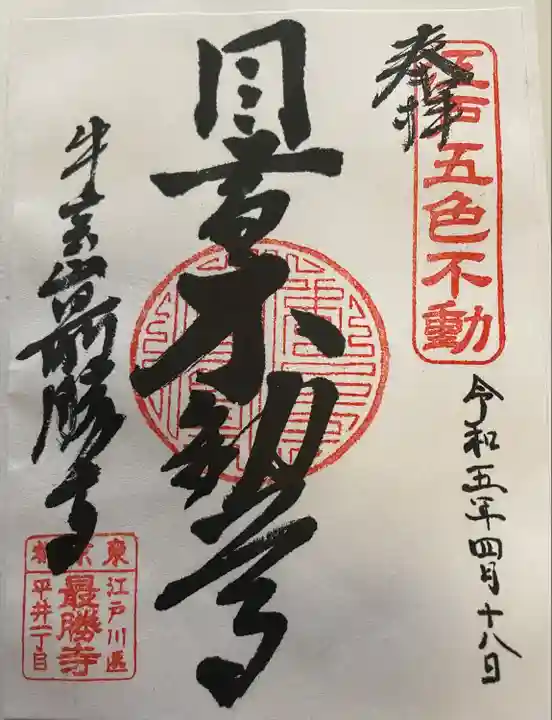 奉拝
江戸五色不動
令和五年四月十八日
目黄不動尊
牛宝山最勝寺
東京
江戸川區
最勝寺
平井一丁目